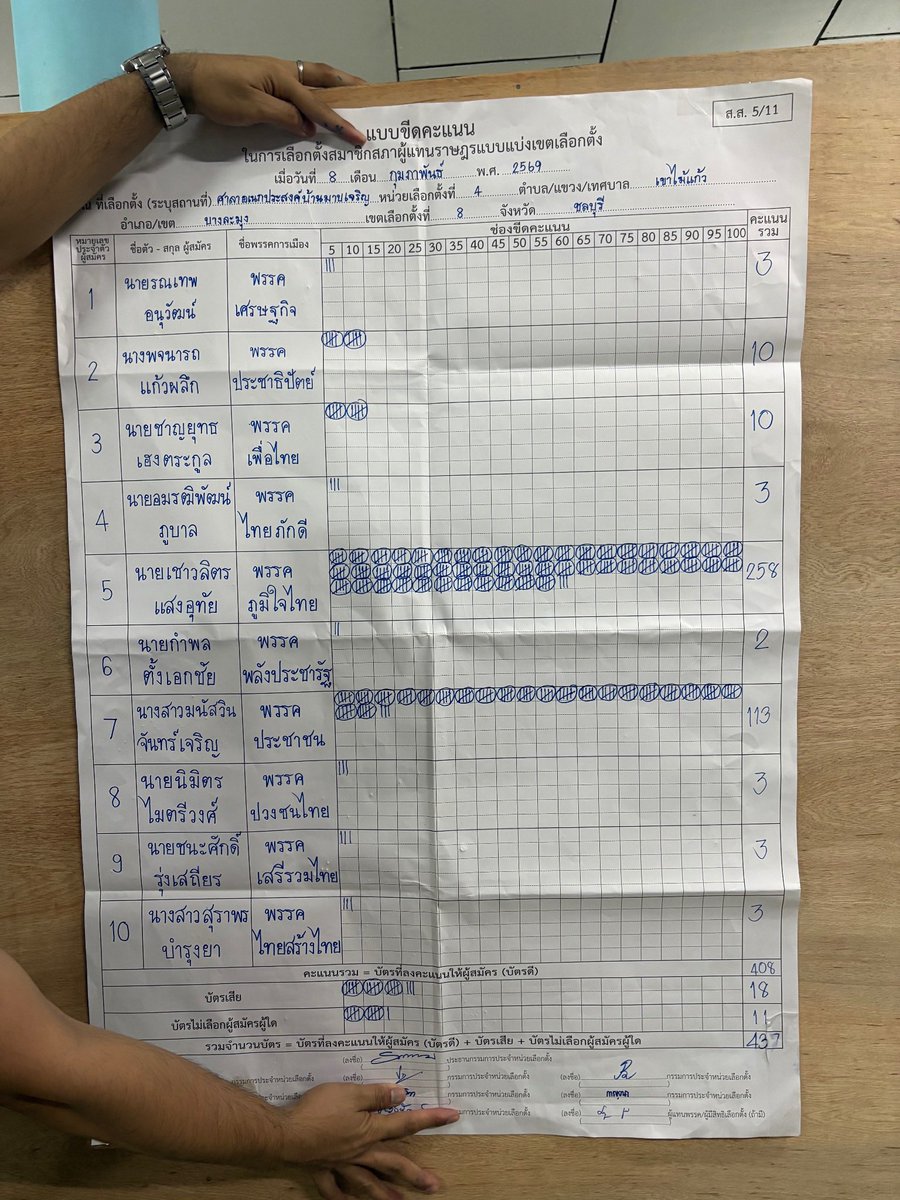 ส.ส. 5/11
แบบขีดคะแนน
ในการเลือกตั้งสมาชิกสภาผู้แทนราษฎรแบบแบ่งเขตเลือกตั้ง
เมื่อวันที่ 8 เดือน กุมภาพันธ์ พ.ศ. 2569
ที่เลือกตั้ง (ระบุสถานที่) ศาลาอเนกประสงค์บ้านมาบเจริญ หน่วยเลือกตั้งที่ 4 ตำบล/แขวง/เทศบาล เขาไม้แก้ว
อำเภอ/เขต บางละมุง เขตเลือกตั้งที่ 8 จังหวัด ชลบุรี
หมายเลขประจำตัวผู้สมัคร ชื่อตัว - สกุล ผู้สมัคร ชื่อพรรคการเมือง ช่องขีดคะแนน คะแนนรวม
5 10 15 20 25 30 35 40 45 50 55 60 65 70 75 80 85 90 95 100
1 นายรณเทพ อนุวัฒน์ พรรค เศรษฐกิจ 3
2 นางพจนารถ แก้วผลึก พรรค ประชาธิปัตย์ 10
3 นายชาญยุทธ เฮงตระกูล พรรค เพื่อไทย 10
4 นายอมรฒิพัฒน์ ภูบาล พรรค ไทยภักดี 3
5 นายเชาวลิตร แสงอุทัย พรรค ภูมิใจไทย 258
6 นายกำพล ตั้งเอกชัย พรรค พลังประชารัฐ 2
7 นางสาวมนัสวิน จันทร์เจริญ พรรค ประชาชน 113
8 นายนิมิตร ไมตรีวงศ์ พรรค ปวงชนไทย 3
9 นายชนะศักดิ์ รุ่งเสถียร พรรค เสรีรวมไทย 3
10 นางสาวสุราพร บำรุงยา พรรค ไทยสร้างไทย 3
คะแนนรวม = บัตรที่ลงคะแนนให้ผู้สมัคร (บัตรดี) 408
บัตรเสีย 18
บัตรไม่เลือกผู้สมัครผู้ใด 11
รวมจำนวนบัตร = บัตรที่ลงคะแนนให้ผู้สมัคร (บัตรดี) + บัตรเสีย + บัตรไม่เลือกผู้สมัครผู้ใด 437
(ลงชื่อ) ประธานกรรมการประจำหน่วยเลือกตั้ง
กรรมการประจำหน่วยเลือกตั้ง (ลงชื่อ) กรรมการประจำหน่วยเลือกตั้ง (ลงชื่อ) กรรมการประจำหน่วยเลือกตั้ง
กรรมการประจำหน่วยเลือกตั้ง (ลงชื่อ) กรรมการประจำหน่วยเลือกตั้ง (ลงชื่อ) กรรมการประจำหน่วยเลือกตั้ง
กรรมการประจำหน่วยเลือกตั้ง (ลงชื่อ) ผู้แทนพรรค/ผู้มีสิทธิเลือกตั้ง (ถ้ามี)